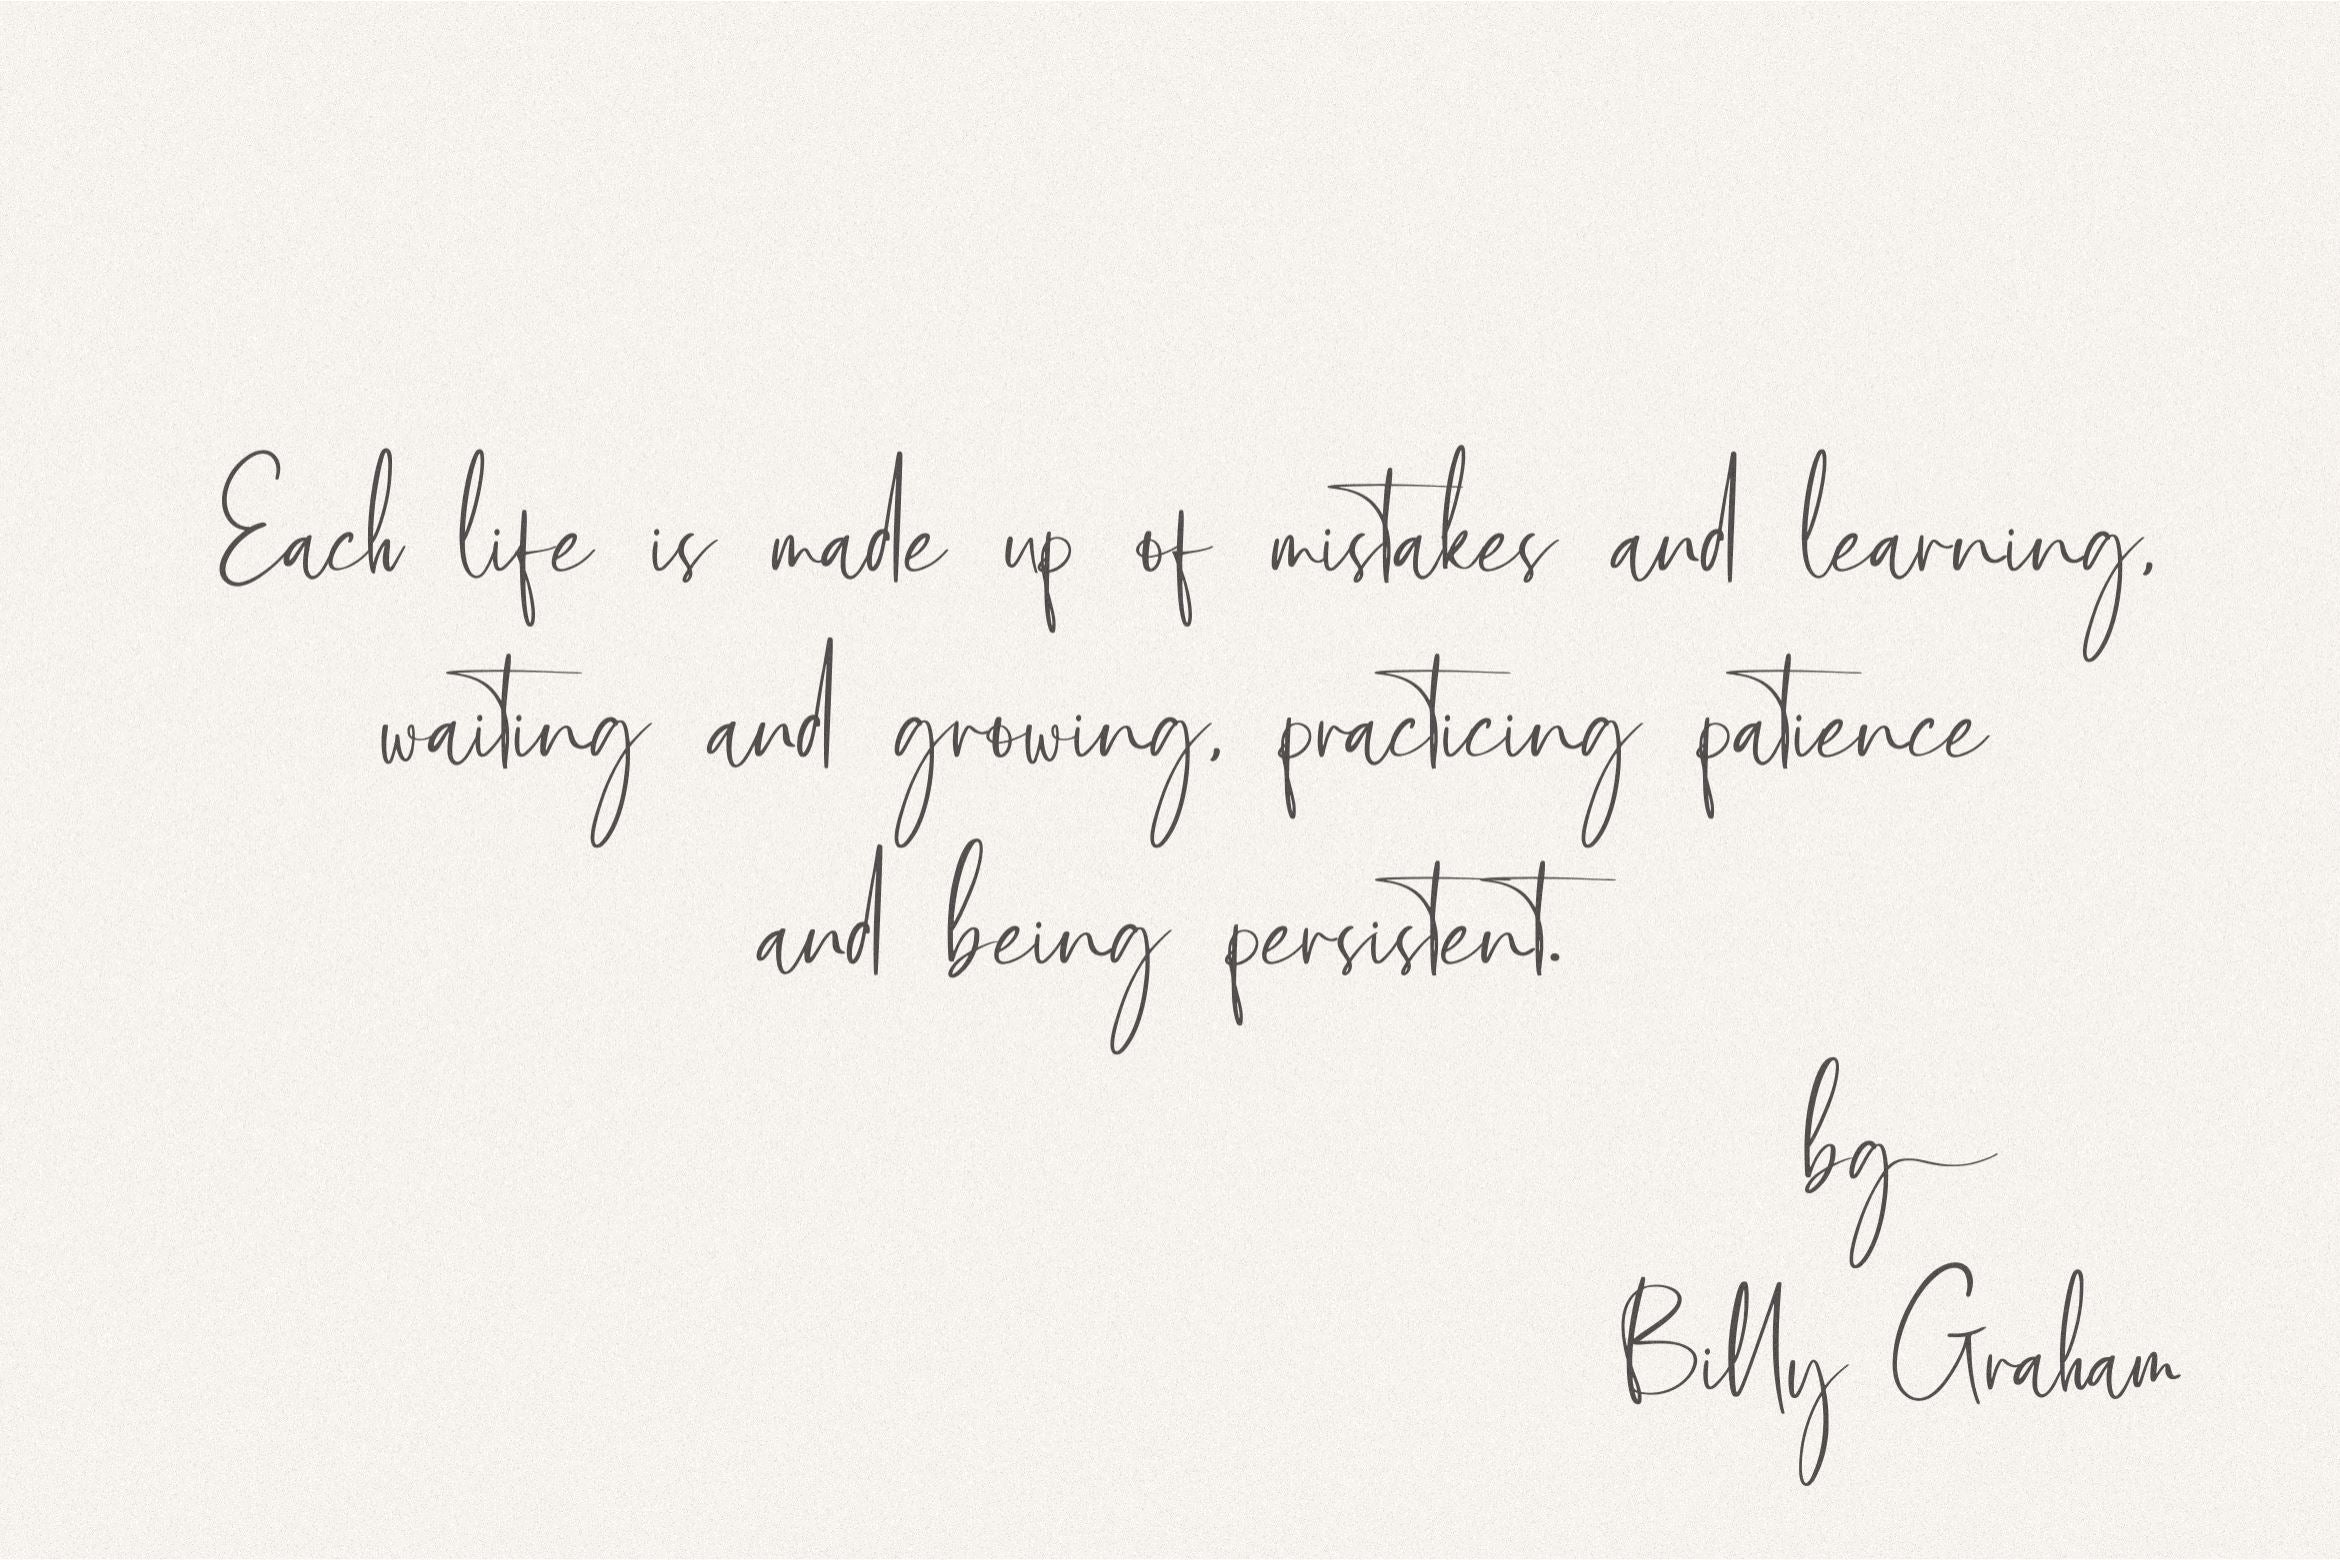 Each life is made up of mistakes and learning,
waiting and growing, practicing patience
and being persistent.
bg
Billy Graham